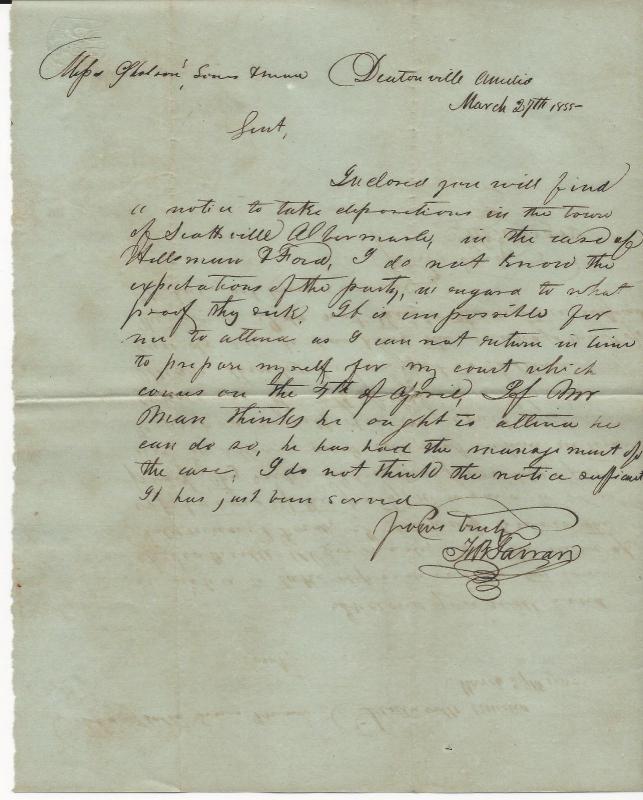 Messrs Gholson, Sons & man Deatonville Amelia
March 27th 1855
Gent,
Inclosed you will find
a notice to take depositions in the town
of Scottsville Albermarle, in the case of
Hillsman & Ford, I do not know the
expectations of the party, in regard to what
proof they seek. It is impossible for
me to attend as I can not return in time
to prepare myself for my court which
comes on the 4th of April, If Mr
Man thinks he ought to attend he
can do so, he has had the management of
the case. I do not think the notice sufficient
It has just been served
Yours truly